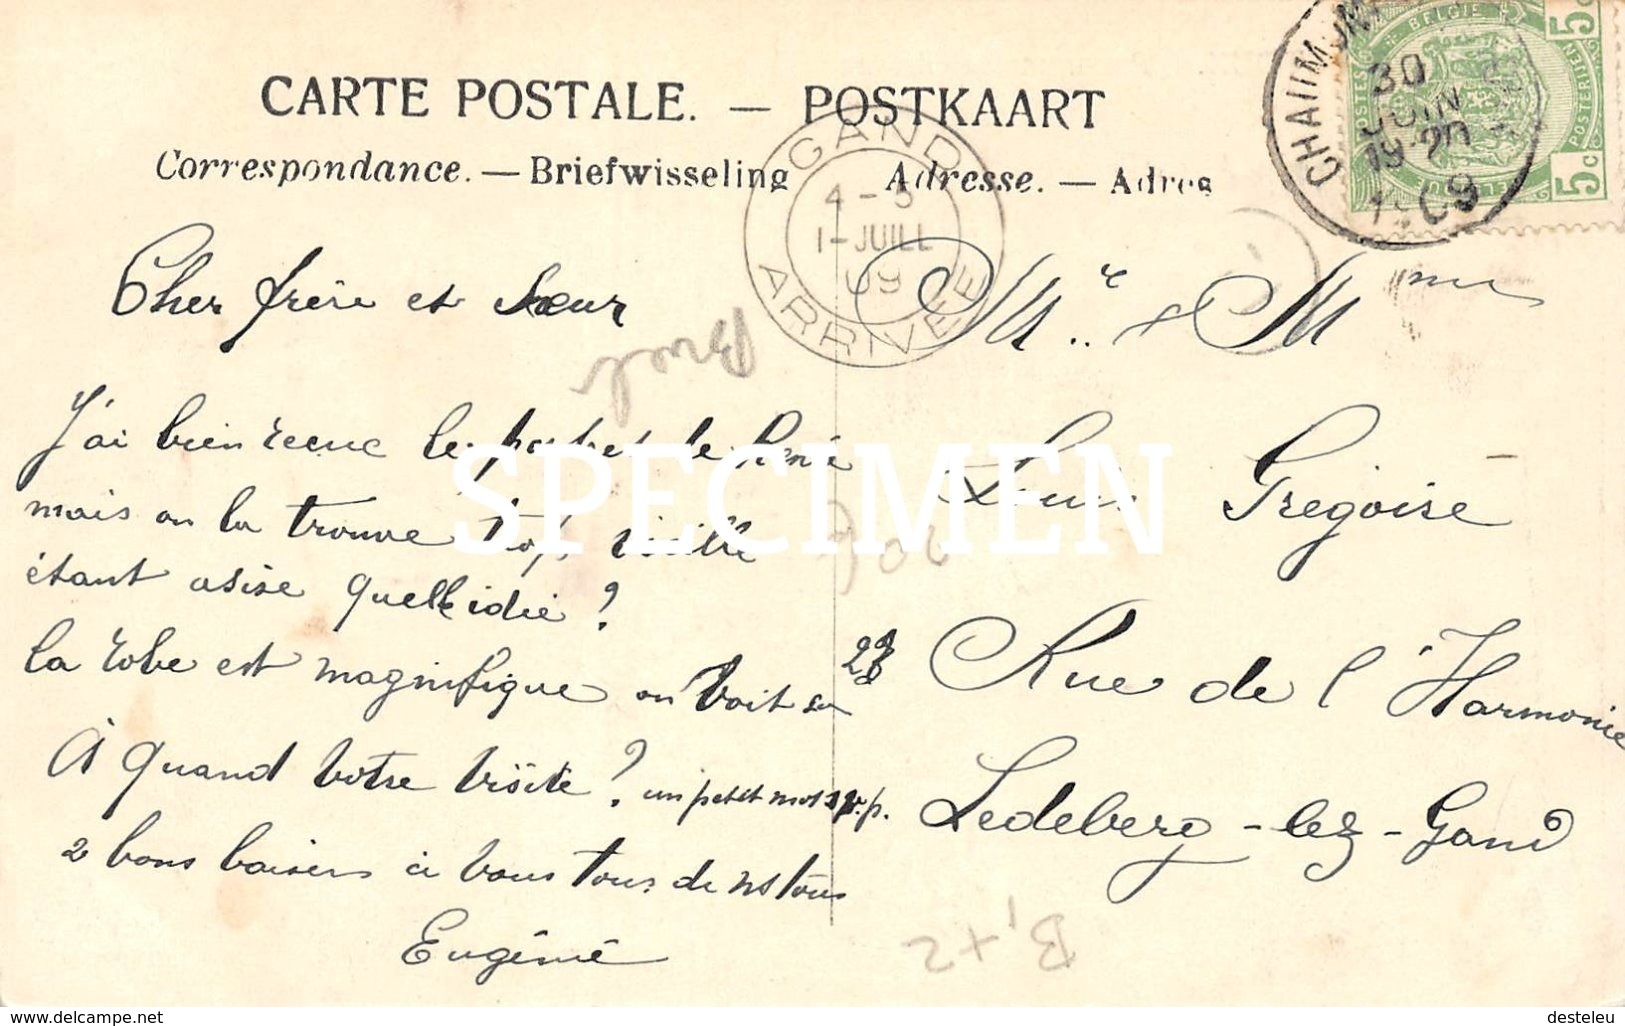 CARTE POSTALE. — POSTKAART
Correspondance. — Briefwisseling
Adresse. — Adres
BELGIE
POSTES
POSTERIJEN
5c
5c
30
JUIN
19-20
GAND
4-5
1-JUILL
09
ARRIVEE
Cher frère et Soeur
J'ai bien recue le portret de René
mais on la trouve trop vieille
étant asise quelle idée?
la robe est magnifique on voit sa
À quand votre visite? un petit mot s.v.p.
2 bons baisers à vous tous de ns tous
Eugénie
Mr. & Mme
Louis Gregoire
Rue de l'Harmonie
Ledeberg-lez-Gand
B,+2
SPECIMEN
www.delcampe.net
desteleu